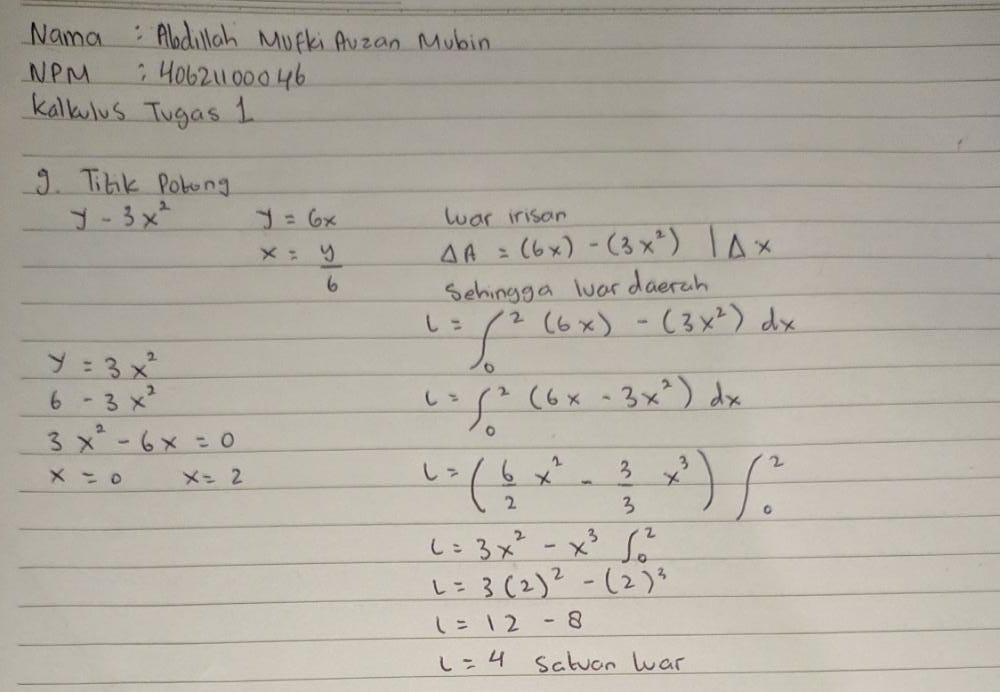 Nama : Abdillah Mufki Auzan Mubin
NPM : 40621100046
Kalkulus Tugas 1
9. Titik Potong
y - 3x² y = 6x
x = y/6
y = 3x²
6 - 3x²
3x² - 6x = 0
x = 0 x = 2
luar irisan
ΔA = (6x) - (3x²) | Δx
Sehingga luar daerah
L = ∫₀² (6x) - (3x²) dx
L = ∫₀² (6x - 3x²) dx
L = (6/2 x² - 3/3 x³) ∫₀²
L = 3x² - x³ ∫₀²
L = 3(2)² - (2)³
L = 12 - 8
L = 4 Satuan luar